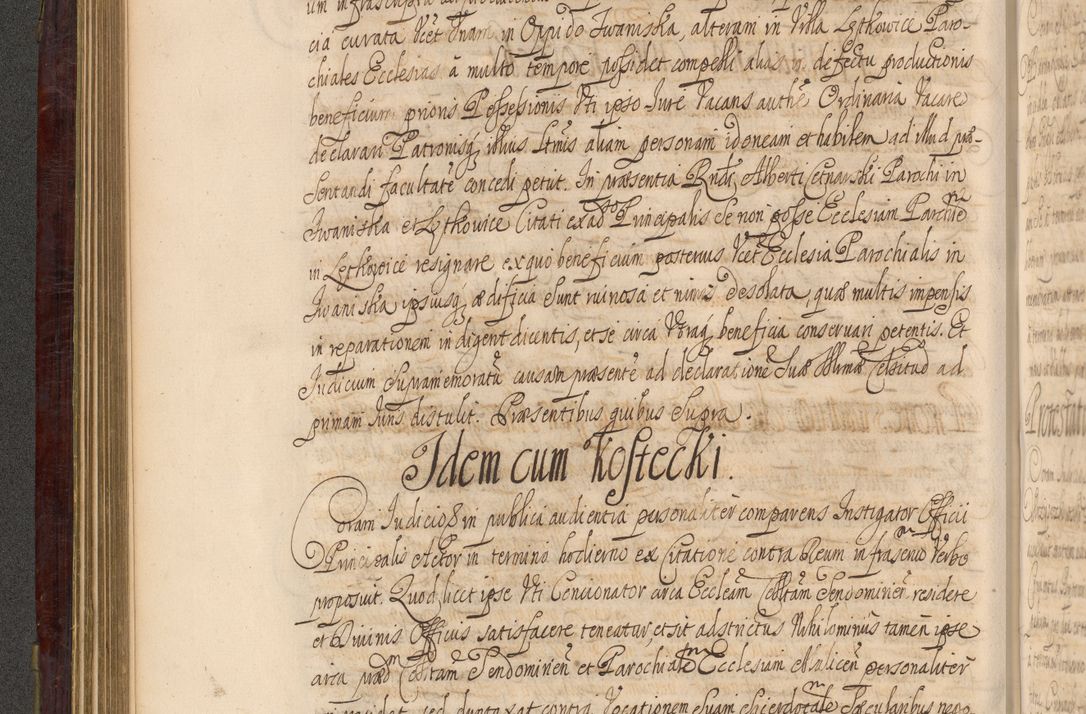 cia curata Vcet Unam in Oppido Iwaniska, alteram in Villa Lętkowice Paro-
chiales Ecclesias à multo tempore possidet compelli alias in defectu productionis
beneficium prioris Possessionis Vti ipso Iure Vacans authē Ordinaria Vacare
declarari Patronisq́ illius Ltmis aliam personam idoneam et habilem ad illud præ-
sentandi facultatē concedi petit. In præsentia Rndi Alberti Cetnarski Parochi in
Iwaniska et Lętkowice Citati ex adto Principalis se non posse Ecclesiam Parchlē
in Lętkowice resignare ex quo beneficium posterius Vcet Ecclesia Parochialis in
Iwaniska ipsiusq́ ædificia sunt ruinosa et nimis desolata, quæ multis impensis
in reparationem indigent dicentis, et se circa Vtraq́ beneficia conservari petentis. Et
Iudicium supramemoratū causam præsentē ad declarationē Suæ Illmæ Celsitud ad
primam Iuris distulit. Præsentibus quibus supra.
Idem cum Kostecki.
Coram Iudicio & in publica audientia personalitēr comparens Instigator Officii
Principalis Actor in termino hodierno ex Citatione contra Reum infrascrip Verbo
proposuit. Quod licet ipse Vti Concionator circa Eccleam Collttam Sendomirien residere
et Divinis Officiis satisfacere teneatur, et sit adstrictus Nihilominūs tamen ipse
circa præd Collttam Sendomirien et Parochialē Ecclesiam Malicen personalitēr
sed duntaxat contra Vocationem suam Sacerdotale Sæcularibus nego